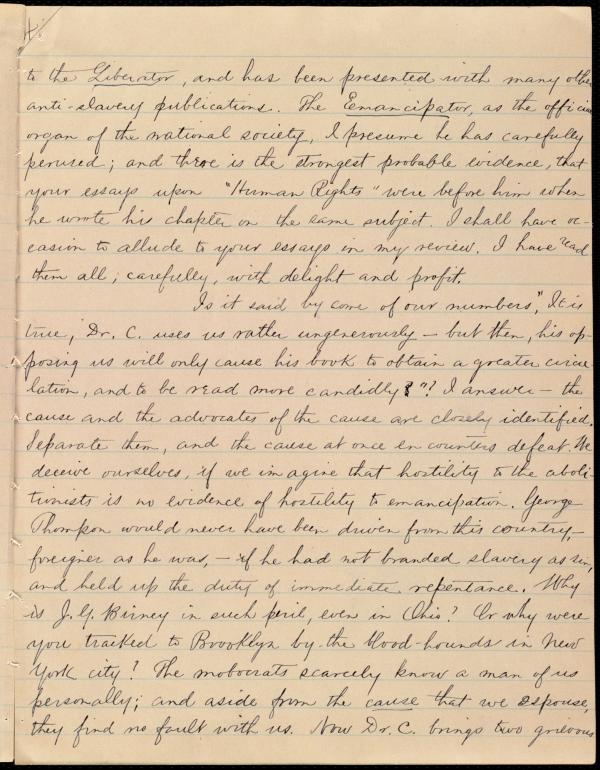 4.
to the Liberator, and has been presented with many other
anti-slavery publications. The Emancipator, as the official
organ of the national society, I presume he has carefully
perused; and there is the strongest probable evidence, that
your essays upon "Human Rights" were before him when
he wrote his chapter on the same subject. I shall have oc-
casion to allude to your essays in my review. I have read
them all, carefully, with delight and profit.
Is it said by some of our numbers, "It is
true, Dr. C. uses us rather ungenerously — but then, his op-
posing us will only cause his book to obtain a greater circu-
lation, and to be read more candidly"? I answer — the
cause and the advocates of the cause are closely identified.
Separate them, and the cause at once encounters defeat. We
deceive ourselves, if we imagine that hostility to the aboli-
tionists is no evidence of hostility to emancipation. George
Thompson would never have been driven from this country,—
foreigner as he was, — if he had not branded slavery as sin,
and held up the duty of immediate repentance. Why
is J. G. Birney in such peril, even in Ohio? Or why were
you tracked to Brooklyn by the blood-hounds in New
York city? The mobocrats scarcely know a man of us
personally; and aside from the cause that we espouse,
they find no fault with us. Now Dr. C. brings two grievous